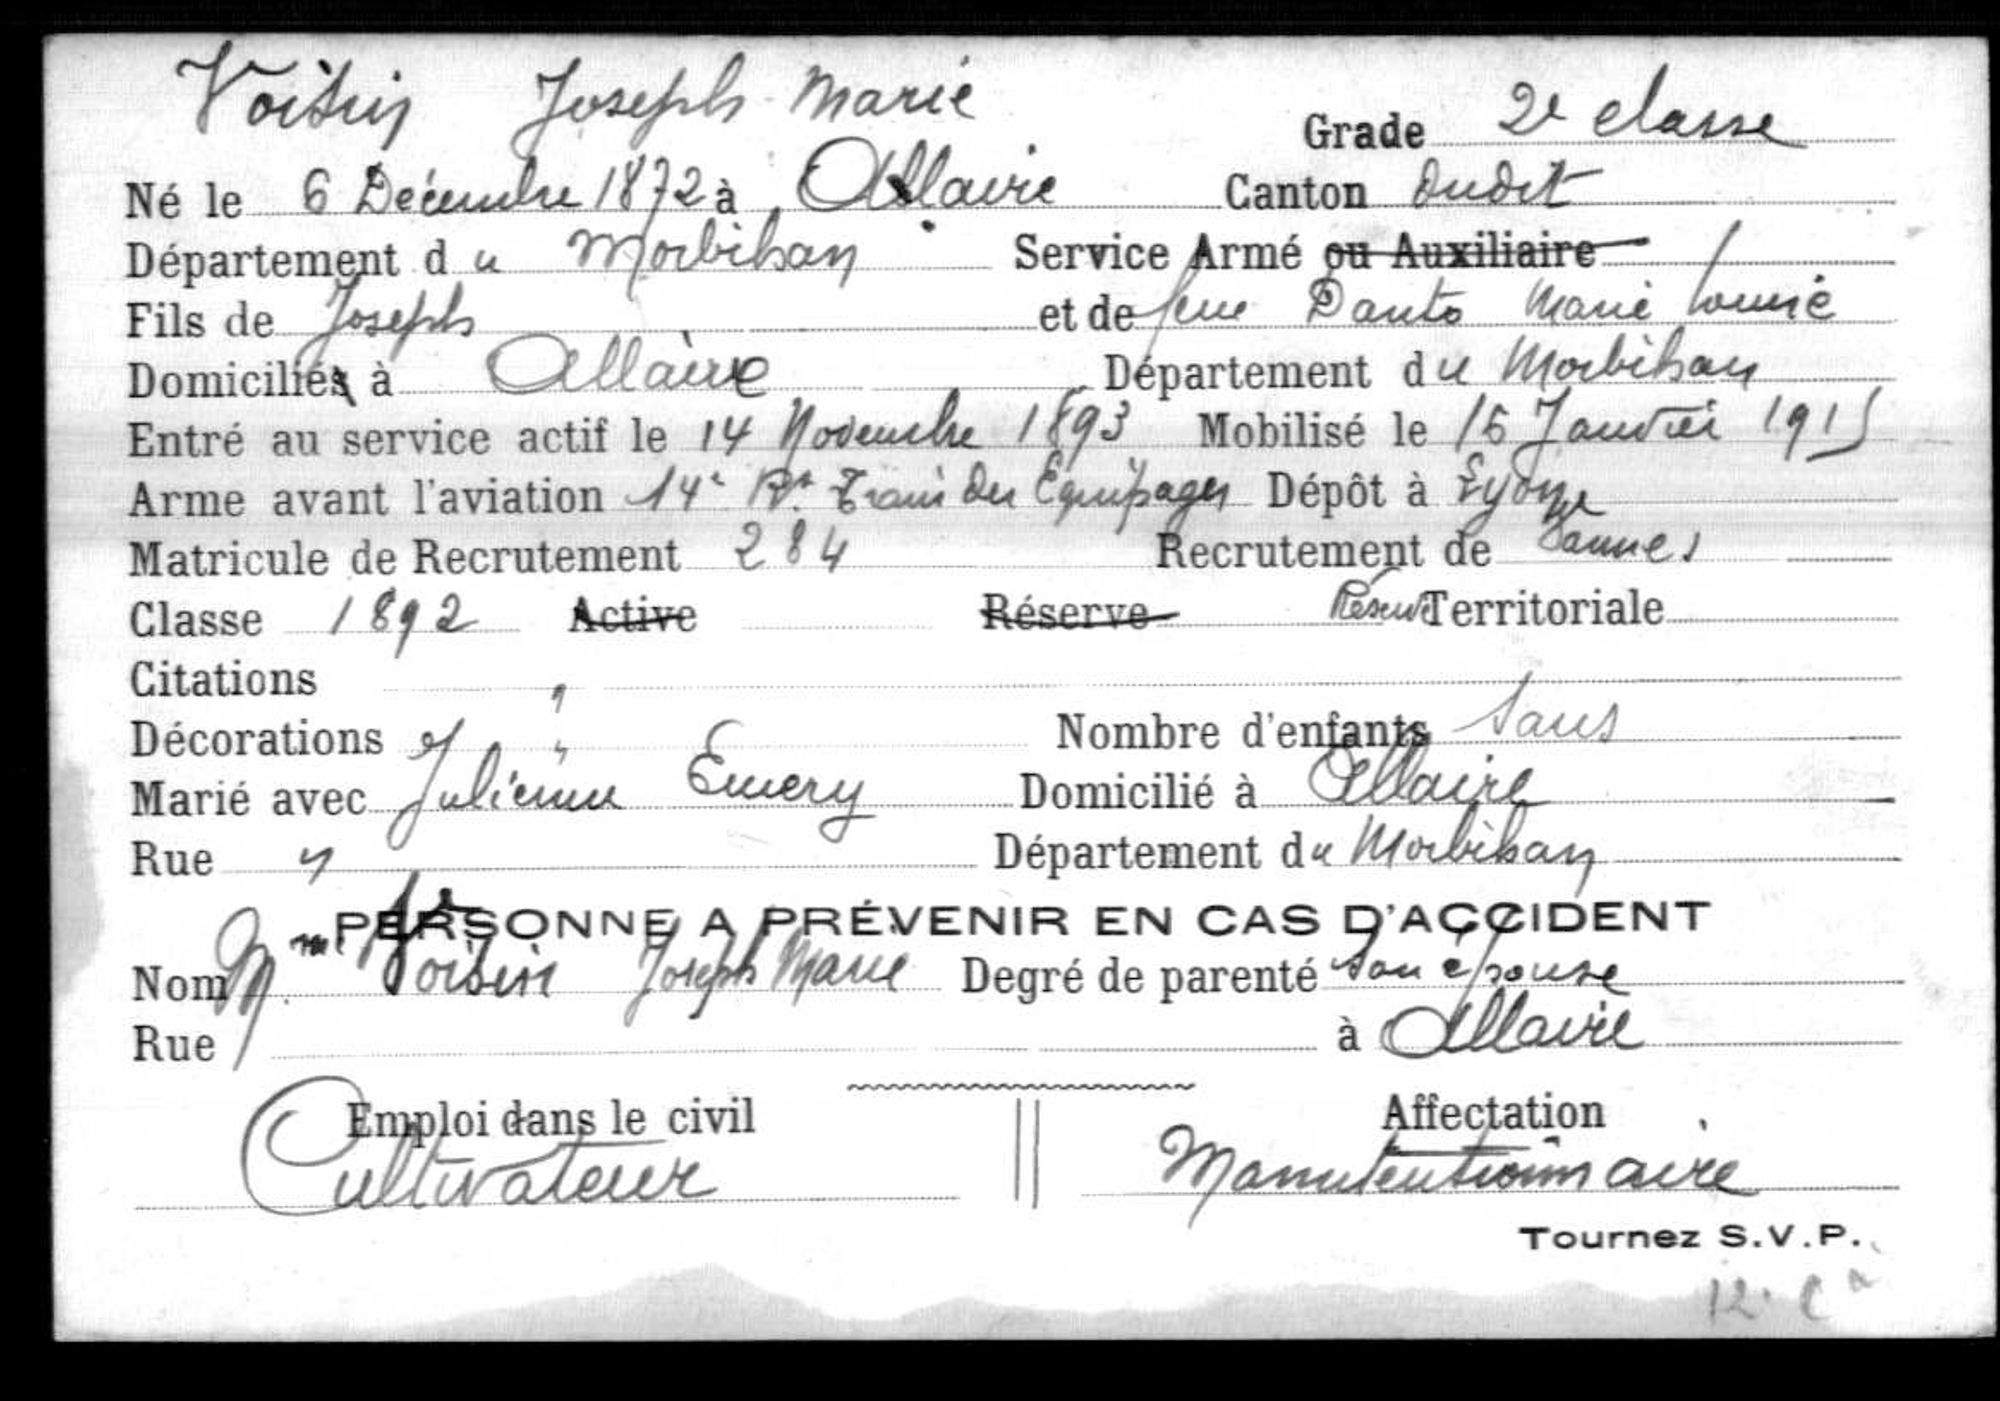 Voisin Joseph Marie
Grade 2e classe
Né le 6 Décembre 1872 à Allaire Canton dudit
Département du Morbihan Service Armé ou Auxiliaire
Fils de Joseph et de feue Danto Marie Louise
Domiciliés à Allaire Département du Morbihan
Entré au service actif le 14 Novembre 1893 Mobilisé le 15 Janvier 1915
Arme avant l'aviation 14e Train des Equipages Dépôt à Lyon
Matricule de Recrutement 284 Recrutement de Vannes
Classe 1892 Active Réserve Réserve Territoriale
Citations "
Décorations " Nombre d'enfants Sans
Marié avec Julienne Emery Domicilié à Allaire
Rue " Département du Morbihan
PERSONNE A PRÉVENIR EN CAS D'ACCIDENT
Nom Mme Voisin Joseph Marie Degré de parenté son épouse
Rue à Allaire
Emploi dans le civil Affectation
Cultivateur Manutentionnaire
Tournez S.V.P.